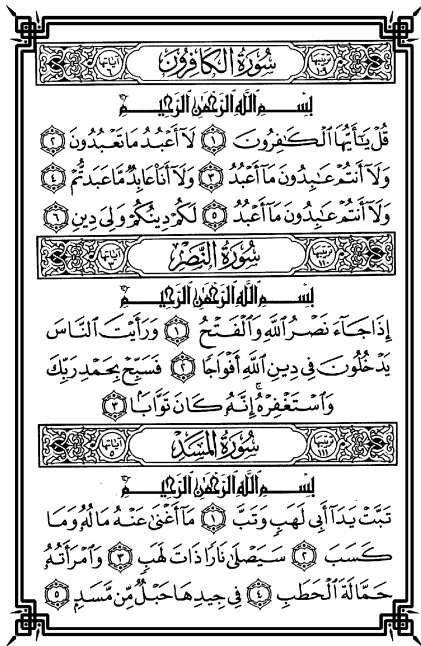 ترتيبها ١٠٩ سورة الكافرون آياتها ٦
بِسْمِ اللَّهِ الرَّحْمَٰنِ الرَّحِيمِ
قُلْ يَٰٓأَيُّهَا الْكَٰفِرُونَ ١ لَآ أَعْبُدُ مَا تَعْبُدُونَ ٢
وَلَآ أَنتُمْ عَٰبِدُونَ مَآ أَعْبُدُ ٣ وَلَآ أَنَا۠ عَابِدٌ مَّا عَبَدتُّمْ ٤
وَلَآ أَنتُمْ عَٰبِدُونَ مَآ أَعْبُدُ ٥ لَكُمْ دِينُكُمْ وَلِيَ دِينِ ٦
ترتيبها ١١٠ سورة النصر آياتها ٣
بِسْمِ اللَّهِ الرَّحْمَٰنِ الرَّحِيمِ
إِذَا جَآءَ نَصْرُ اللَّهِ وَالْفَتْحُ ١ وَرَأَيْتَ النَّاسَ
يَدْخُلُونَ فِي دِينِ اللَّهِ أَفْوَاجًا ٢ فَسَبِّحْ بِحَمْدِ رَبِّكَ
وَاسْتَغْفِرْهُ ۚ إِنَّهُ كَانَ تَوَّابًا ٣
ترتيبها ١١١ سورة المسد آياتها ٥
بِسْمِ اللَّهِ الرَّحْمَٰنِ الرَّحِيمِ
تَبَّتْ يَدَآ أَبِي لَهَبٍ وَتَبَّ ١ مَآ أَغْنَىٰ عَنْهُ مَالُهُ وَمَا
كَسَبَ ٢ سَيَصْلَىٰ نَارًا ذَاتَ لَهَبٍ ٣ وَامْرَأَتُهُ
حَمَّالَةَ الْحَطَبِ ٤ فِي جِيدِهَا حَبْلٌ مِّن مَّسَدٍ ٥